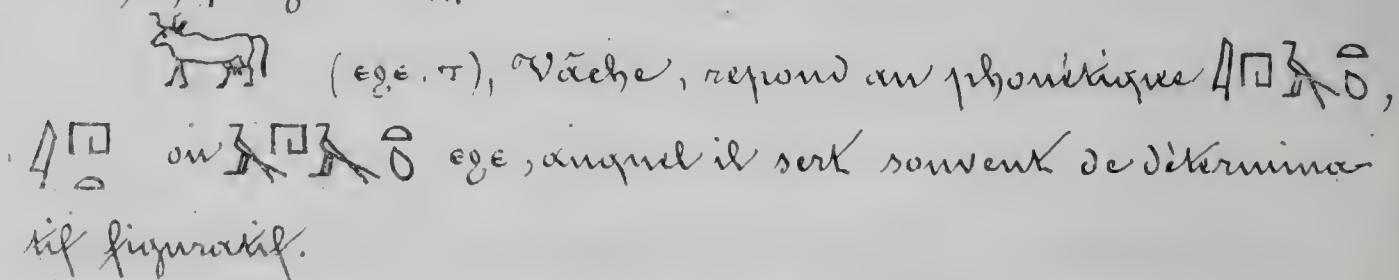 𓃒 (ⲉϩⲉ. ⲧ), Vache, répond au phonétique 𓇋𓉔𓄿𓏏𓆇,
𓇋𓉔𓏏 ou 𓄿𓉔𓄿𓏏𓆇 ⲉϩⲉ, auquel il sert souvent de détermina-
tif figuratif.